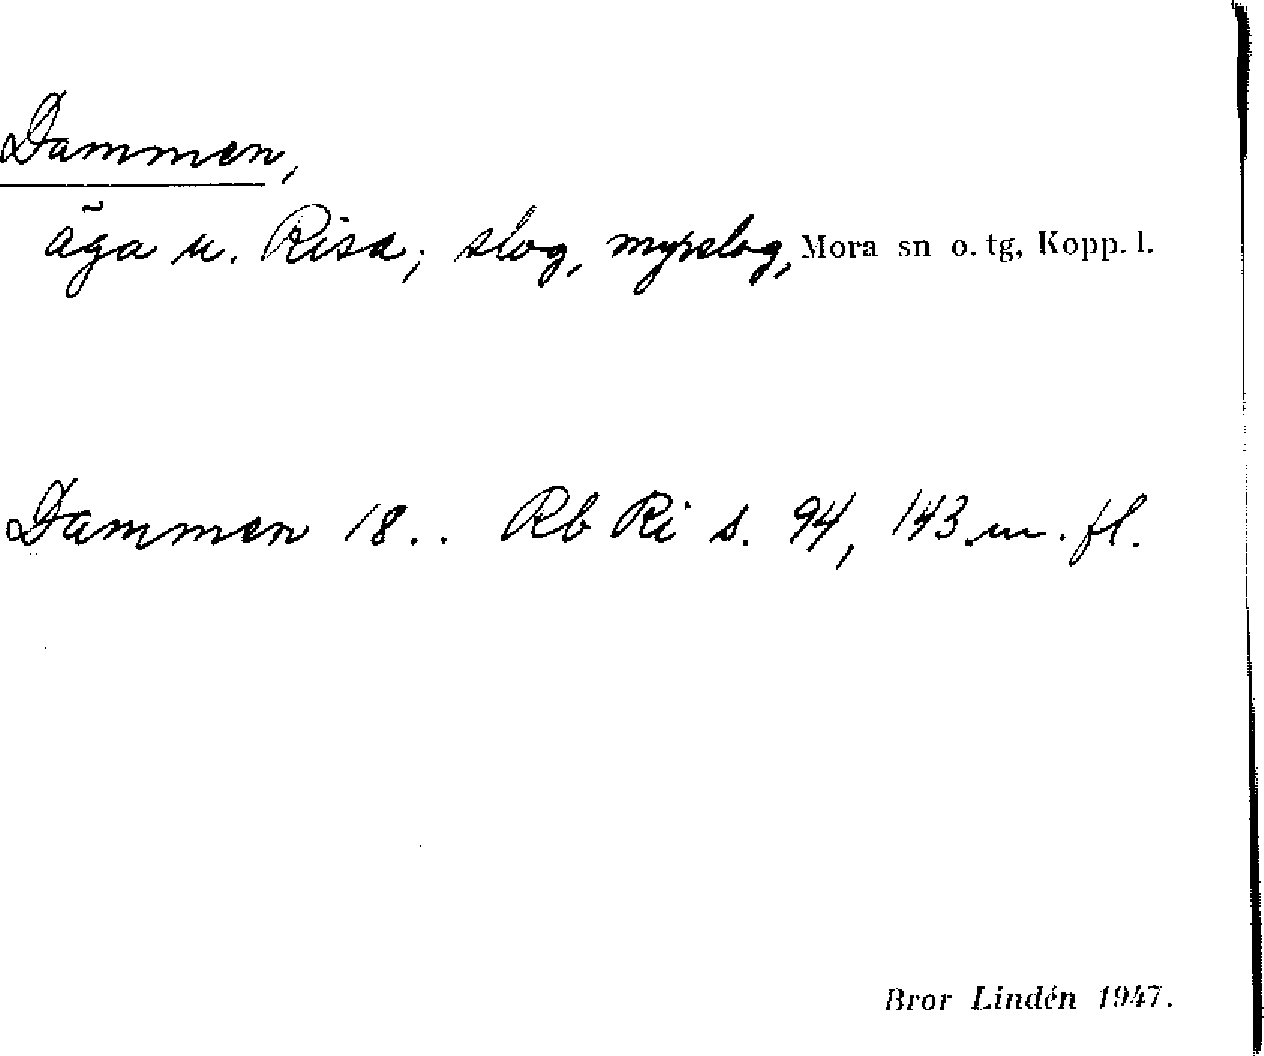 Dammen,
äga u. Risa; slog, myrslog, Mora sn o. tg, Kopp. l.
Dammen 18.. Rb Ri s. 94, 143 m. fl.
Bror Lindén 1947.